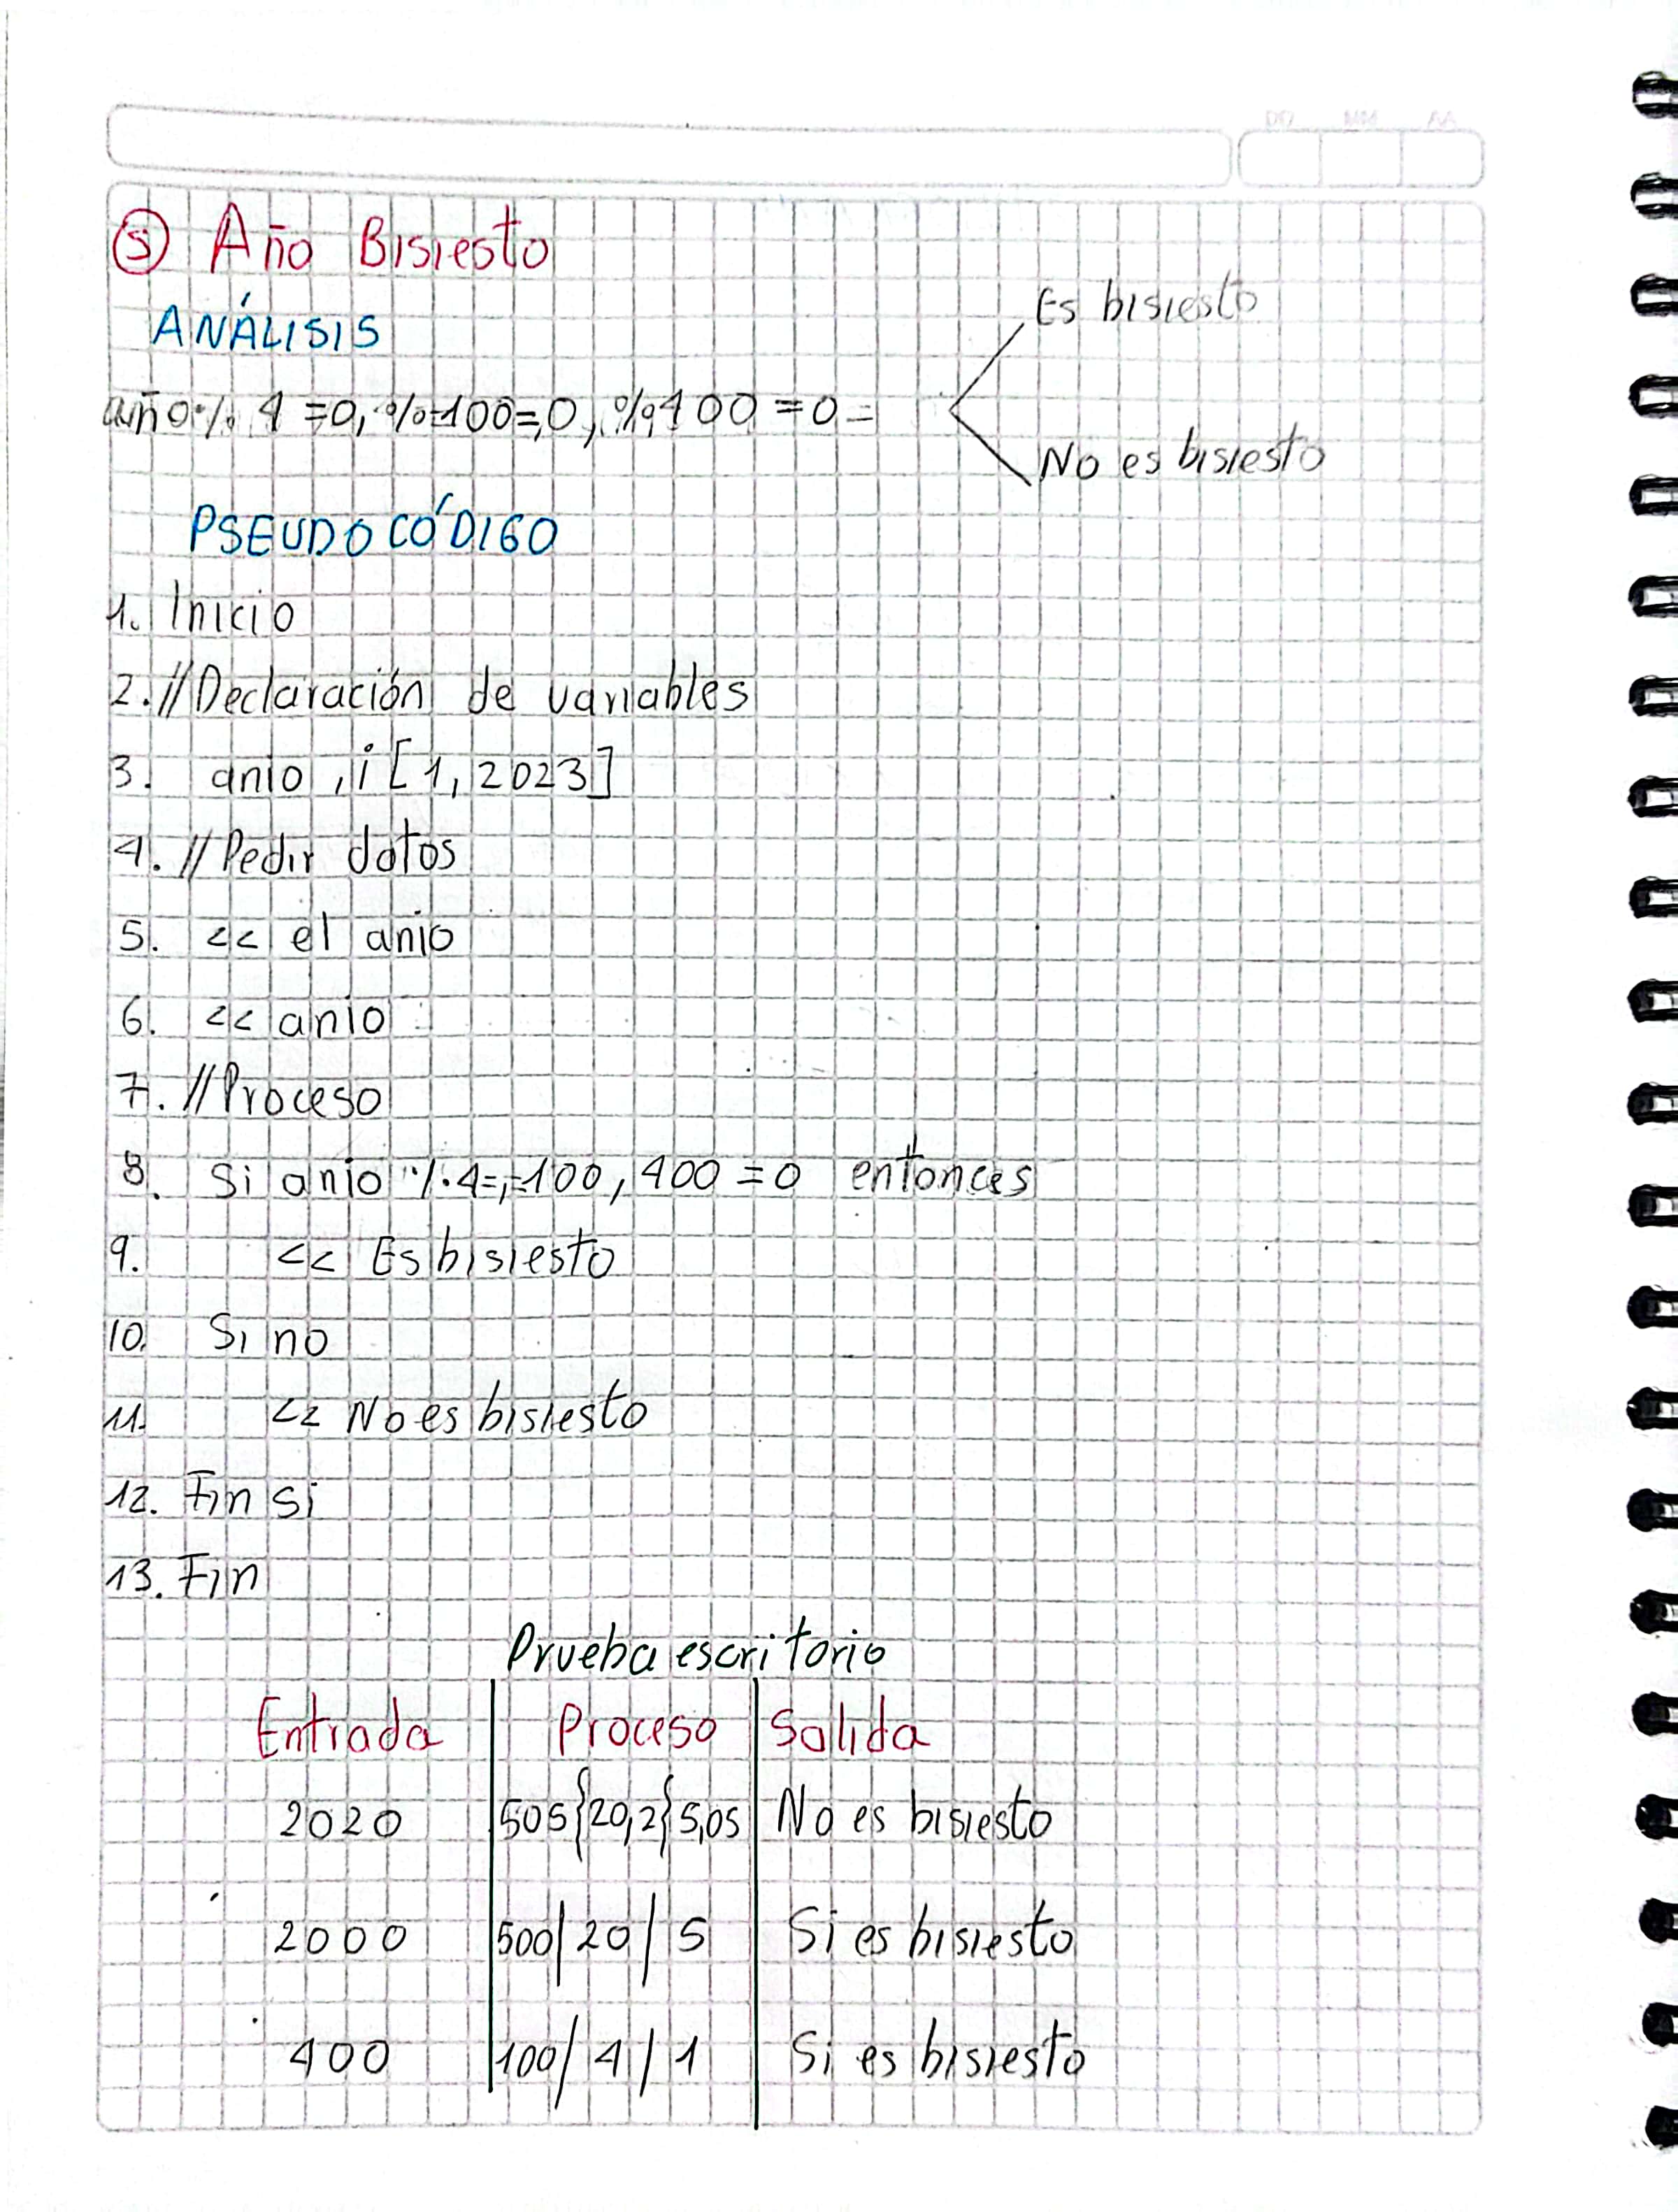 DD MM AA
⑤ Año Bisiesto
ANÁLISIS
año % 4 =0, %100=,0, %400 =0 =
Es bisiesto
No es bisiesto
PSEUDOCÓDIGO
1. Inicio
2. //Declaración de variables
3. anio, i [1, 2023]
4. //Pedir datos
5. << el anio
6. << anio
7. //Proceso
8. Si anio % 4=,=100, 400 =0 entonces
9. << Es bisiesto
10. Si no
11. << No es bisiesto
12. Fin si
13. Fin
Prueba escritorio
Entrada Proceso Salida
2020 505{20,2{5,05 No es bisiesto
2000 500/20/5 Si es bisiesto
400 100/4/1 Si es bisiesto